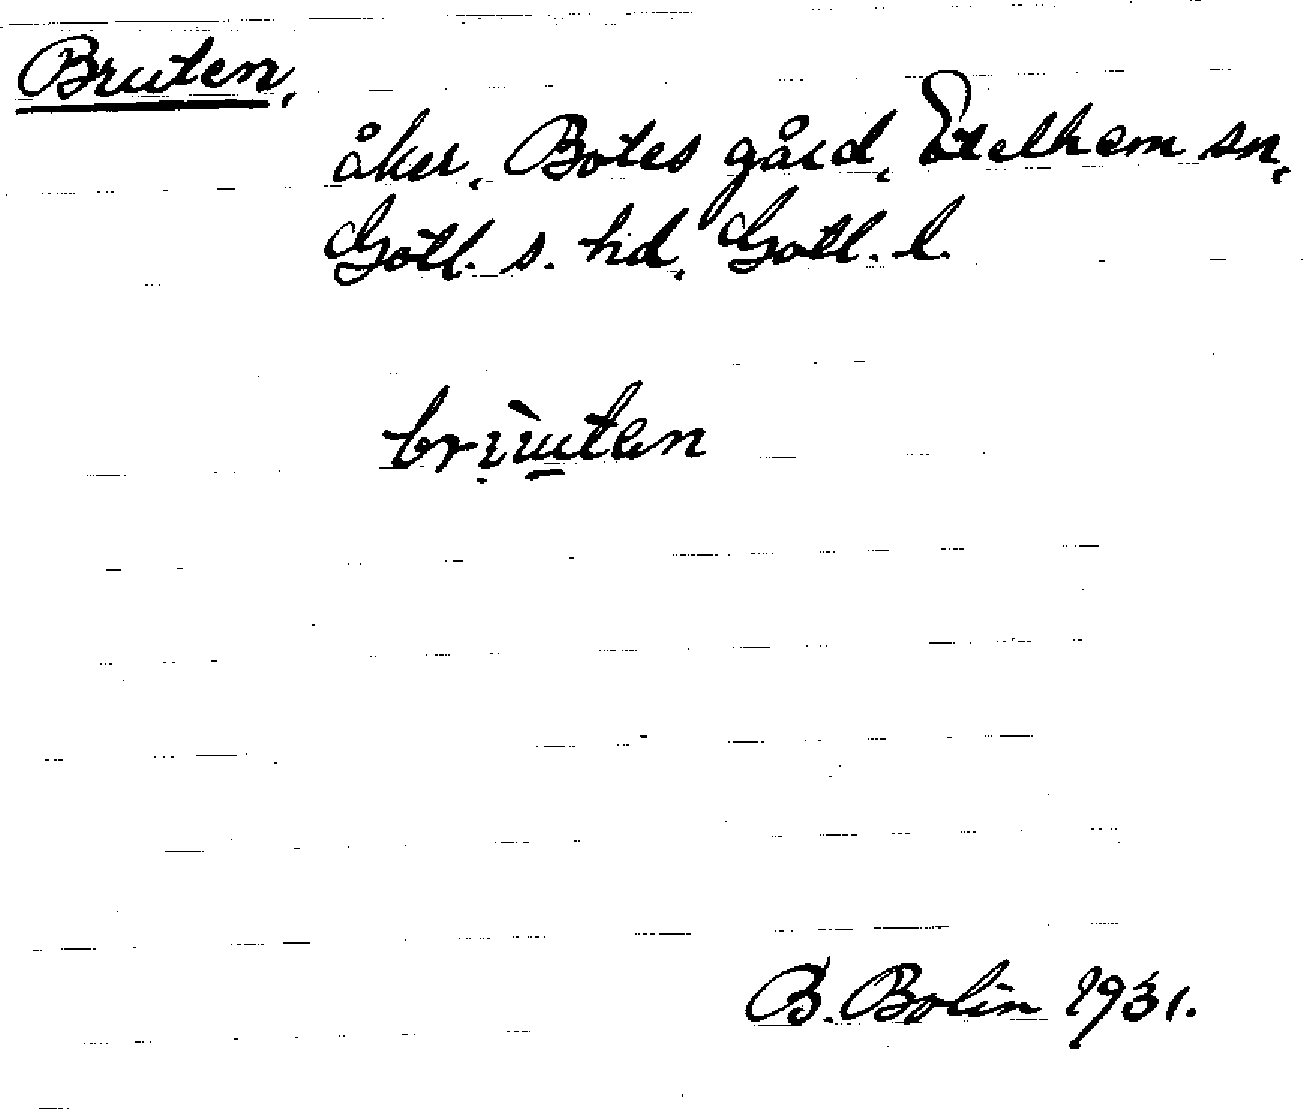 Bruten,
åker, Botes gård, Etelhem sn,
Gotl. s. hd, Gotl. l.
B. Bolin 1931.